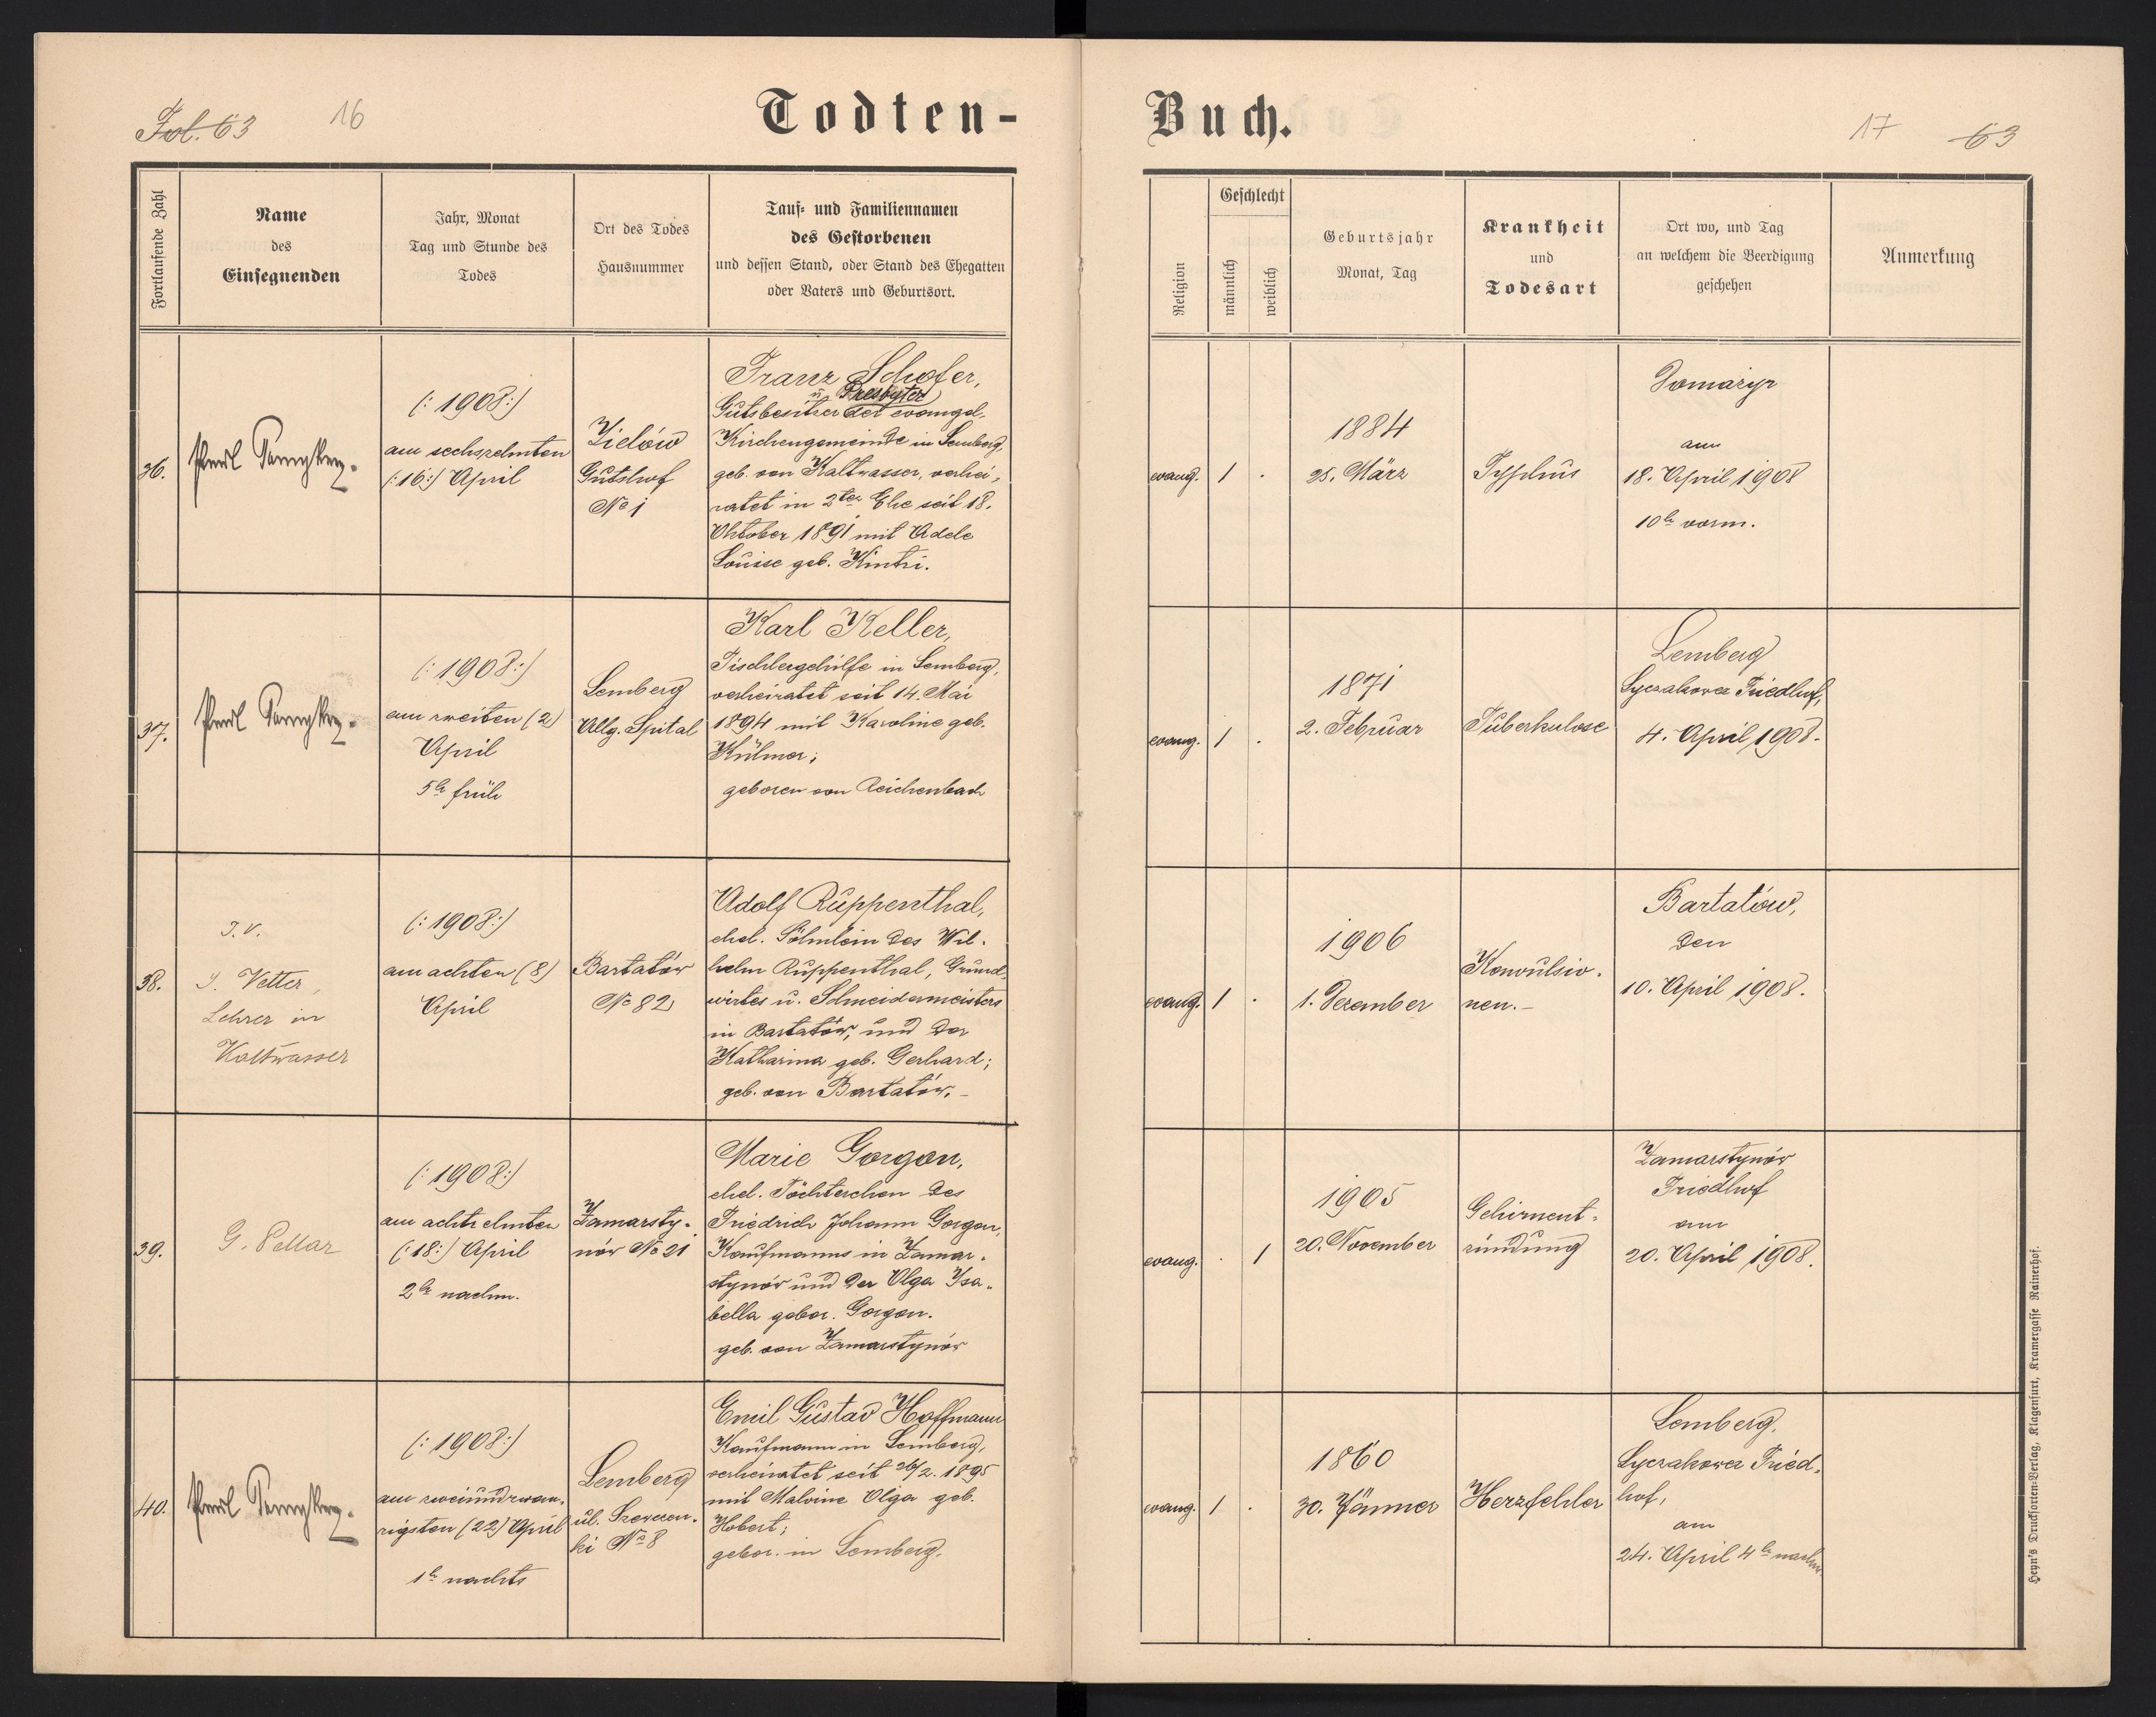 Fol. 63
16
Todten-
Fortlaufende Zahl
Name
des
Einsegnenden
Jahr, Monat
Tag und Stunde des
Todes
Ort des Todes
Hausnummer
Tauf- und Familiennamen
des Gestorbenen
und dessen Stand, oder Stand des Ehegatten
oder Vaters und Geburtsort.
36.
(: 1908 :)
am sechszehnten
(:16:) April
Zielów
Gutshof
No 1
Franz Schofer,
u. Presbyter
Gutsbesitzer der evangel.
Kirchengemeinde in Lemberg,
geb. von Kaltwasser, verhei-
ratet in 2ter Ehe seit 18.
Oktober 1891 mit Adele
Louise geb. Kintzi.
37.
(: 1908 :)
am zweiten (2)
April
5h früh
Lemberg
Allg. Spital
Karl Keller,
Tischlergehülfe in Lemberg,
verheiratet seit 14. Mai
1894 mit Karoline geb.
Külmer;
geboren von Reichenbach
38.
I. V.
J. Vetter,
Lehrer in
Kaltwasser
(: 1908 :)
am achten (8)
April
Bartatów
No 82
Adolf Ruppenthal,
ehel. Söhnlein des Wil-
helm Ruppenthal, Grund-
wirtes u. Schneidermeisters
in Bartatów, und der
Katharina geb. Gerhard;
geb. von Bartatów. –
39.
G. Pellar
(: 1908 :)
am achtzehnten
(:18:) April
2h nachm.
Zamarsty-
nów No 21
Marie Gorgon,
ehel. Töchterchen des
Friedrich Johann Gorgon,
Kaufmanns in Zamar-
stynów und der Olga Isa-
bella gebor. Gorgon.
geb. von Zamarstynów
40.
(: 1908 :)
am zweiundzwan-
zigsten (22) April
1h nachts
Lemberg
ul.
ki No 8
Emil Gustav Hoffmann
Kaufmann in Lemberg,
verheiratet seit 26/2. 1895
mit Malvine Olga geb.
Hobert;
gebor. in Lemberg.
Buch.
17
63
Religion
Geschlecht
männlich
weiblich
Geburtsjahr
Monat, Tag
Krankheit
und
Todesart
Ort wo, und Tag
an welchem die Beerdigung
geschehen
Anmerkung
evang.
1
.
1884
25. März
Typhus
Domazyr
am
18. April 1908
10h vorm.
evang.
1
.
1871
2. Februar
Tuberkulose
Lemberg
Lyczakower Friedhof,
4. April 1908.
evang.
1
.
1906
1. Dezember
Konvulsio-
nen. –
Bartatów,
den
10. April 1908.
evang.
.
1
1905
20. November
Gehirnent-
zündung
Zamarstynów
Friedhof
am
20. April 1908.
evang.
1
.
1860
30. Jänner
Herzfehler
Lemberg.
Lyczakower Fried-
hof,
am
24. April 4h nachm
Heyn's Drucksorten-Verlag, Klagenfurt, Kramergasse Rainerhof.